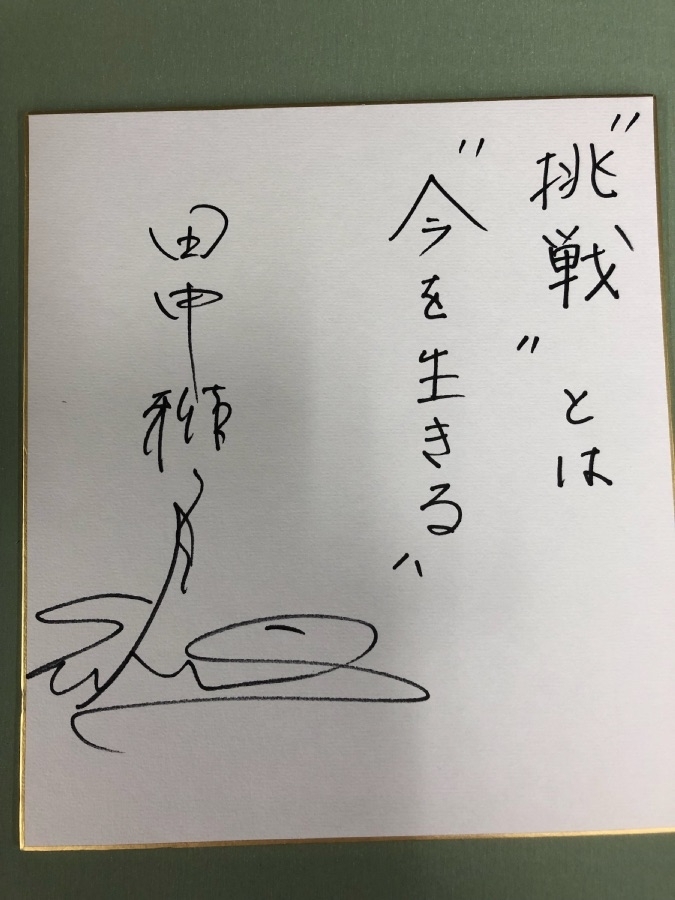 "挑戦"とは
"今を生きる"
田中雅